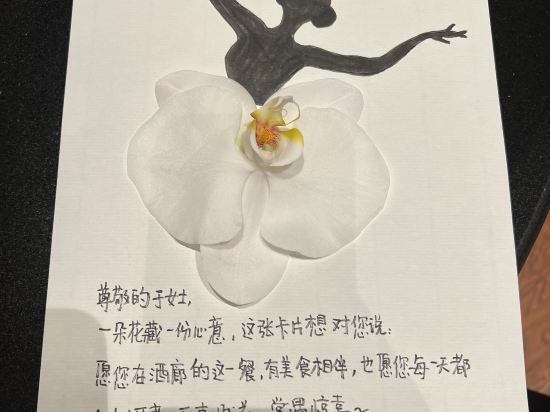 尊敬的于女士,
一朵花藏一份心意,这张卡片想对您说:
愿您在酒廊的这一餐,有美食相伴,也愿您每一天都
常遇惊喜~